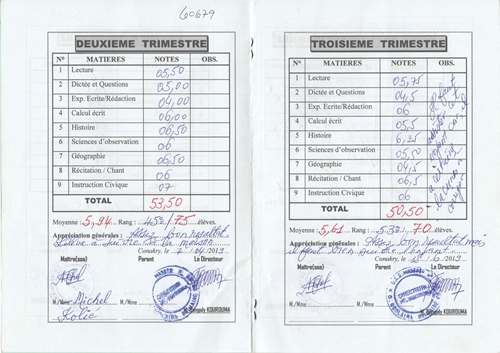 60679
DEUXIEME TRIMESTRE
N° MATIERES NOTES OBS.
1 Lecture 05,50
2 Dictée et Questions 05,00
3 Exp. Ecrite/Rédaction 04,00
4 Calcul écrit 06,00
5 Histoire 06,50
6 Sciences d'observation 06
7 Géographie 06,50
8 Récitation / Chant 06
9 Instruction Civique 07
TOTAL 53,50
Moyenne : 5,94 Rang : 45e /75 élèves.
Appréciation générales : Assez bon résultat
à la maison
Conakry, le 7/04/2013
Maître(sse) Parent Le Directeur
M./Mme Michel
Kolié
KOUROUMA
TROISIEME TRIMESTRE
N° MATIERES NOTES OBS.
1 Lecture 05,75
2 Dictée et Questions 04,5
3 Exp. Ecrite/Rédaction 06
4 Calcul écrit 05,5
5 Histoire 6,25
6 Sciences d'observation 05,50
7 Géographie 04,5
8 Récitation / Chant 06,5
9 Instruction Civique 06
Il faut
TOTAL 50,50
Moyenne : 5,61 Rang : 53e 70 élèves.
Appréciation générales : Assez bon résultat mais
il faut bien suivre l'enfant
Conakry, 6/2013
Maître(sse) Parent Le Directeur
M./Mme
KOUROUMA